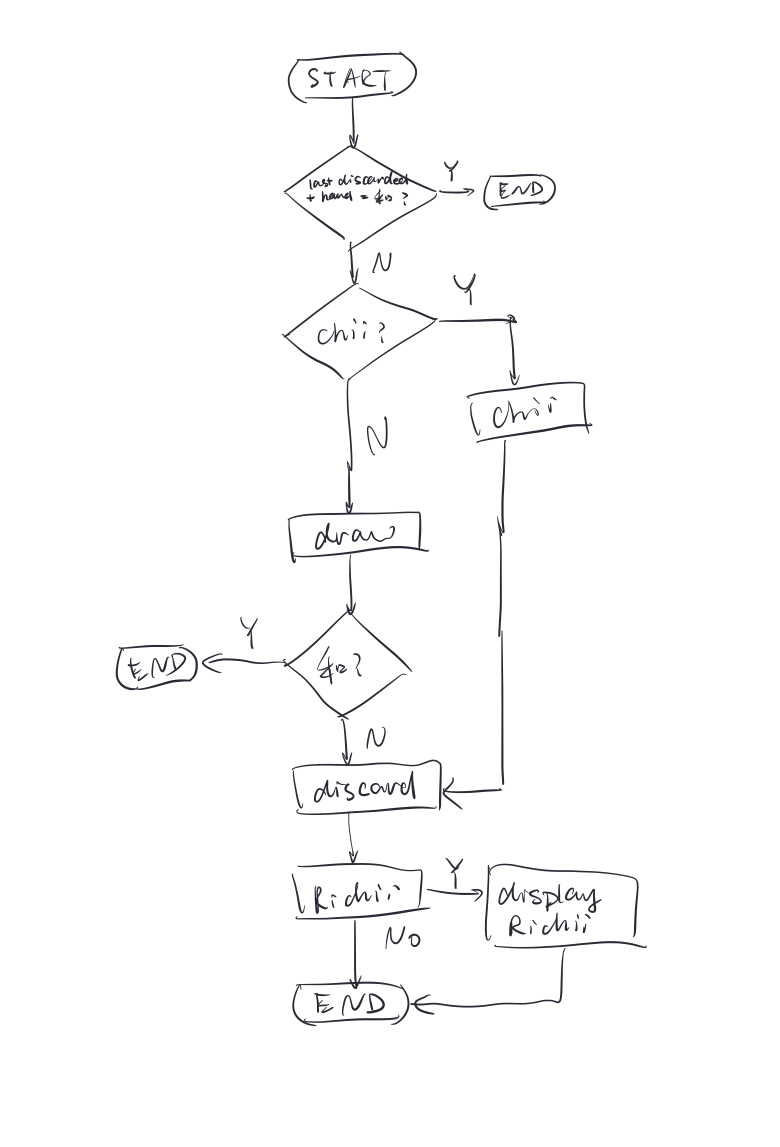 START
last discarded
+ hand = 和?
Y
END
N
chii?
Y
chii
N
draw
和?
Y
END
N
discard
Richii
Y
display
Richii
No
END